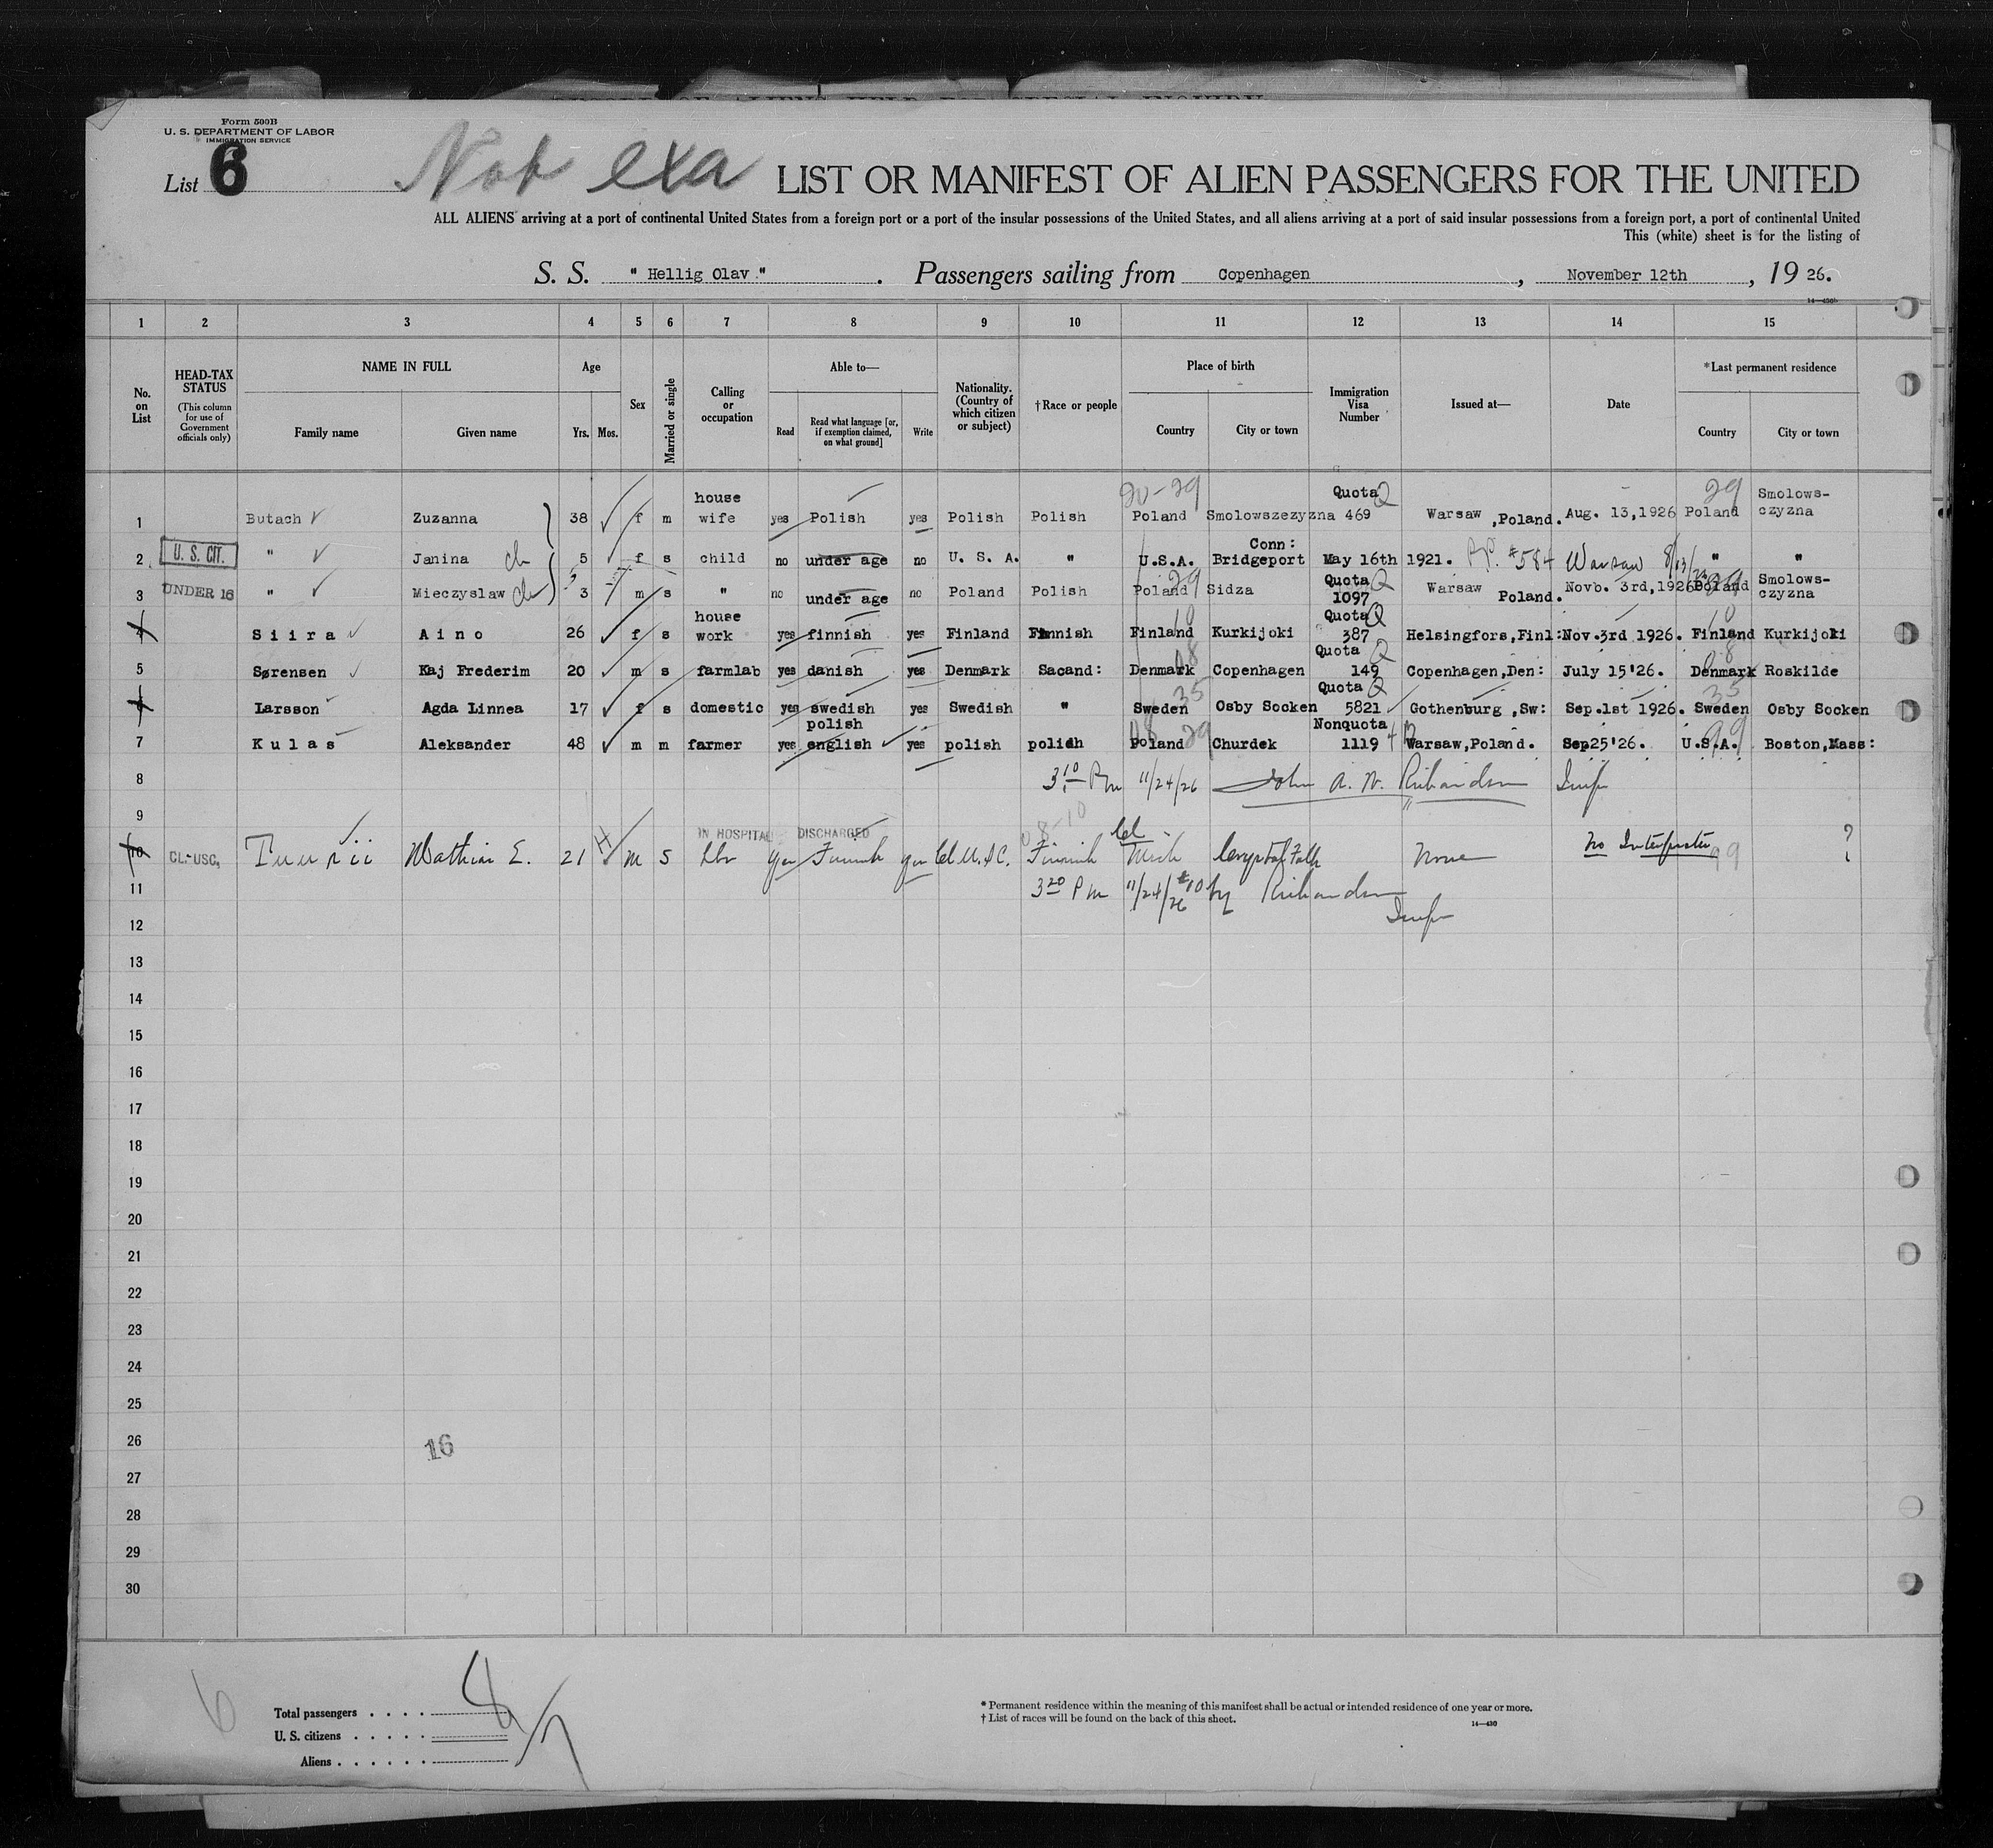 RECORD OF ALIENS HELD FOR SPECIAL INQUIRY
Form 500B
U. S. DEPARTMENT OF LABOR
IMMIGRATION SERVICE
List 6
Not exa
LIST OR MANIFEST OF ALIEN PASSENGERS FOR THE UNITED
ALL ALIENS arriving at a port of continental United States from a foreign port or a port of the insular possessions of the United States, and all aliens arriving at a port of said insular possessions from a foreign port, a port of continental United
This (white) sheet is for the listing of
S. S. " Hellig Olav ". Passengers sailing from Copenhagen , November 12th , 19 26.
14—430b
1 2 3 4 5 6 7 8 9 10 11 12 13 14 15
No. on List
HEAD-TAX STATUS (This column for use of Government officials only)
NAME IN FULL
Family name Given name
Age
Yrs. Mos.
Sex
Married or single
Calling or occupation
Able to—
Read Read what language [or, if exemption claimed, on what ground] Write
Nationality. (Country of which citizen or subject)
†Race or people
Place of birth
Country City or town
Immigration Visa Number
Issued at—
Date
*Last permanent residence
Country City or town
20-29 29
1 Butach Zuzanna 38 f m house wife yes Polish yes Polish Polish Poland Smolowszezyzna Quota Q 469 Warsaw ,Poland. Aug. 13,1926 Poland Smolows-czyzna
2 U. S. CIT. " Janina ch 5 f s child no under age no U. S. A. " U.S.A. Conn: Bridgeport May 16th 1921. P.P. #584 Warsaw 8/13/26 " "
3 UNDER 16 " Mieczyslaw ch 3 m s " no under age no Poland Polish Poland 29 Sidza Quota Q 1097 Warsaw Poland. Novb. 3rd,1926 Poland 29 Smolows-czyzna
4 Siira Aino 26 f s house work yes finnish yes Finland Finnish Finland 10 Kurkijoki Quota Q 387 Helsingfors,Finl: Nov.3rd 1926. Finland 10 Kurkijoki
5 Sørensen Kaj Frederim 20 m s farmlab yes danish yes Denmark Sacand: Denmark 08 Copenhagen Quota Q 149 Copenhagen,Den: July 15'26. Denmark 08 Roskilde
6 Larsson Agda Linnea 17 f s domestic yes swedish yes Swedish " Sweden 35 Osby Socken Quota Q 5821 Gothenburg ,Sw: Sep.1st 1926. Sweden 35 Osby Socken
7 Kulas Aleksander 48 m m farmer yes polish english yes polish polich Poland 08 29 Churdek Nonquota 1119 Warsaw,Poland. Sep25'26. U.S.A. 99 Boston,Mass:
8 3 10 Pm 11/24/26 John A. W. Richardson Insp
9
IN HOSPITAL DISCHARGED 08-10
10 CL-USC, Mathias E. 21 m s Lbr yes Finnish yes Cl U.S.C. Finnish Cl Mich Crystal Falls None No Interpreter 99 ?
11 3 20 Pm 11/24/26 #10 by Richardson
12 Insp
13
14
15
16
17
18
19
20
21
22
23
24
25
26
16
27
28
29
30
6
Total passengers . . . . 8/7
U. S. citizens . . . . .
Aliens . . . . . .
* Permanent residence within the meaning of this manifest shall be actual or intended residence of one year or more.
† List of races will be found on the back of this sheet.
14—430